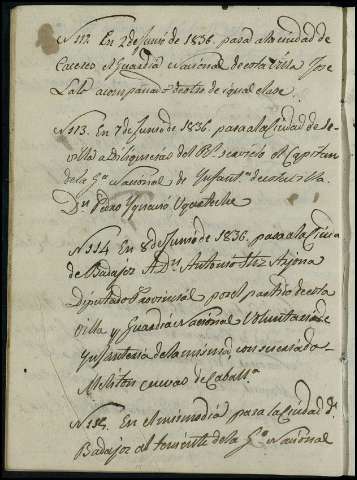 N 112. En 2 de Junio de 1836. pasa a la ciudad de
Caceres el Guardia Nacional de esta villa Jose
Lalo acompañado de otro de igual clase.
N 113. En 7 de Junio de 1836. pasa a la Ciudad de Se
villa a diligencias del Rl. servicio el Capitan
de la Ga. Nacional de Infanta. de esta villa.
Dn. Pedro Ygnacio
N 114. En 8 de Junio de 1836. pasa a la Ciuda
de Badajoz A Dn. Antonio Arjona
Diputado Provincial por el partido de esta
villa y Guardia Nacional Voluntario de
Ynfanteria de la misma, con su criado
Meliton Cuevas de Caballa.
N 115. En el mismo dia pasa a la Ciudad de
Badajoz al teniente de la Ga. Nacional